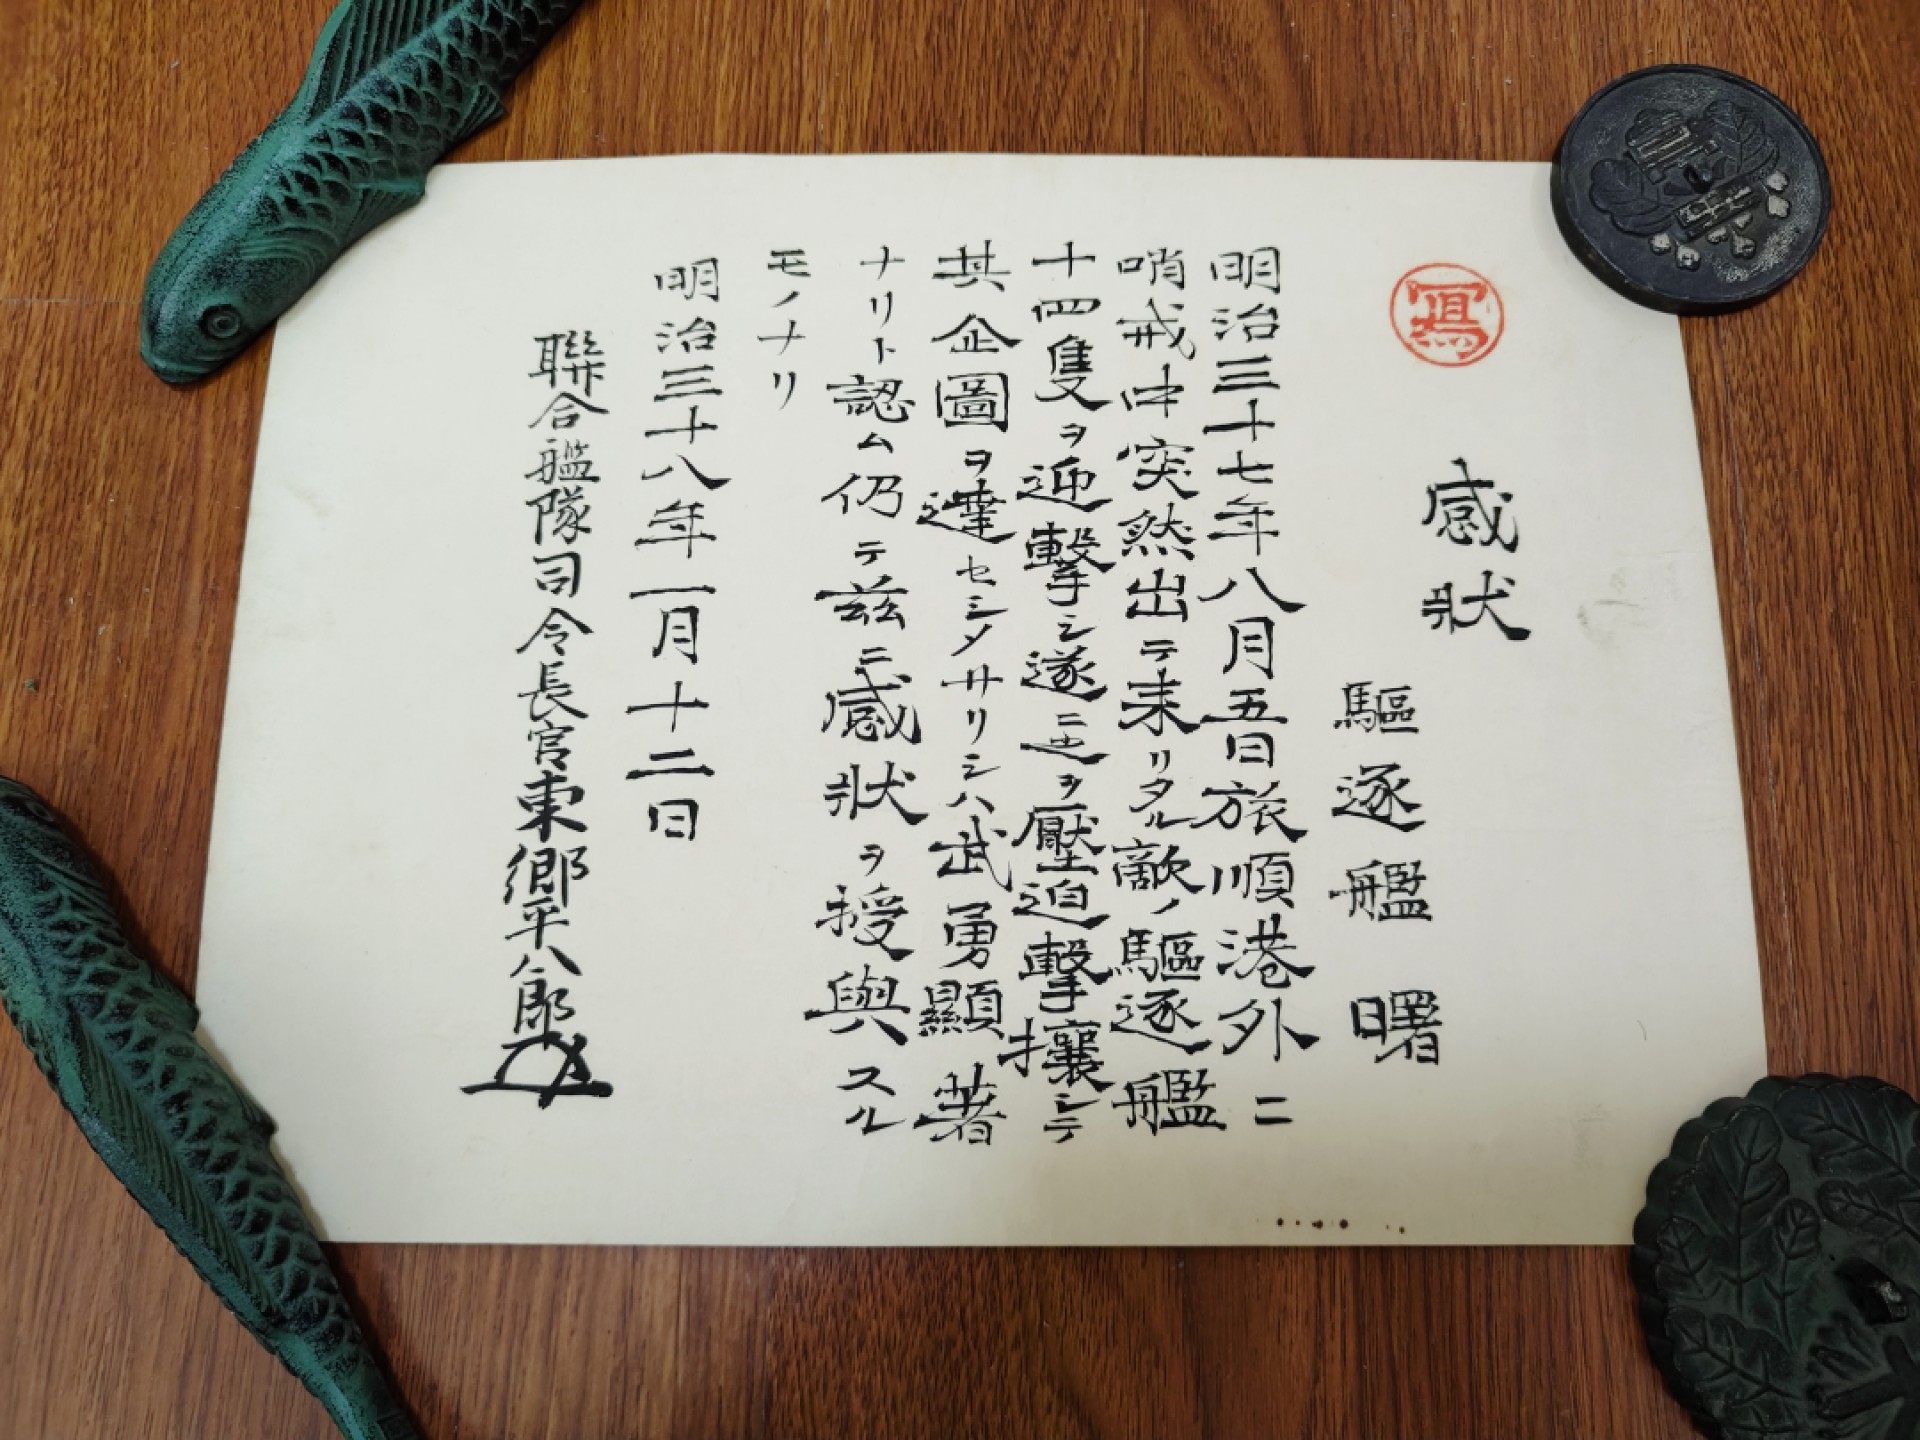 寫
感狀
驅逐艦 曙
明治三十七年八月五日旅順港外ニ
哨戒中突然出テ来リタル敵ノ驅逐艦
十四隻ヲ迎擊シ遂ニ之ヲ壓迫擊攘シテ
其企圖ヲ達セシメサリシハ武勇顯著
ナリト認ム仍テ茲ニ感狀ヲ授與スル
モノナリ
明治三十八年一月十二日
聯合艦隊司令長官東郷平八郎